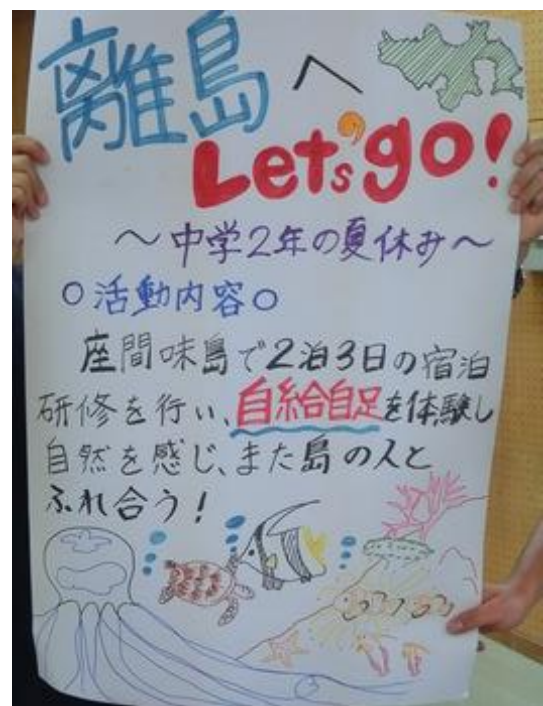 離島へ
Let'sgo!
～中学2年の夏休み～
○活動内容○
座間味島で2泊3日の宿泊
研修を行い、自給自足を体験し
自然を感じ、また島の人と
ふれ合う!